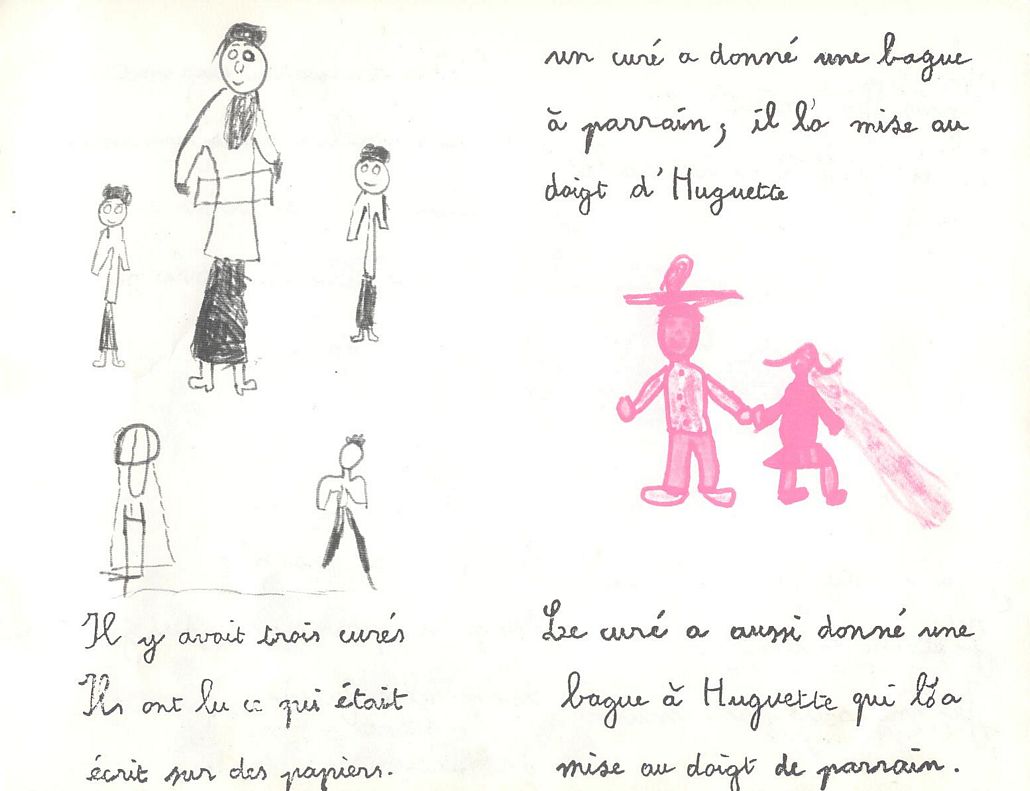 Il y avait trois curés
Ils ont lu ce qui était
écrit sur des papiers.
un curé a donné une bague
à parrain, il l'a mise au
doigt d'Huguette
Le curé a aussi donné une
bague à Huguette qui l'a
mise au doigt de parrain.